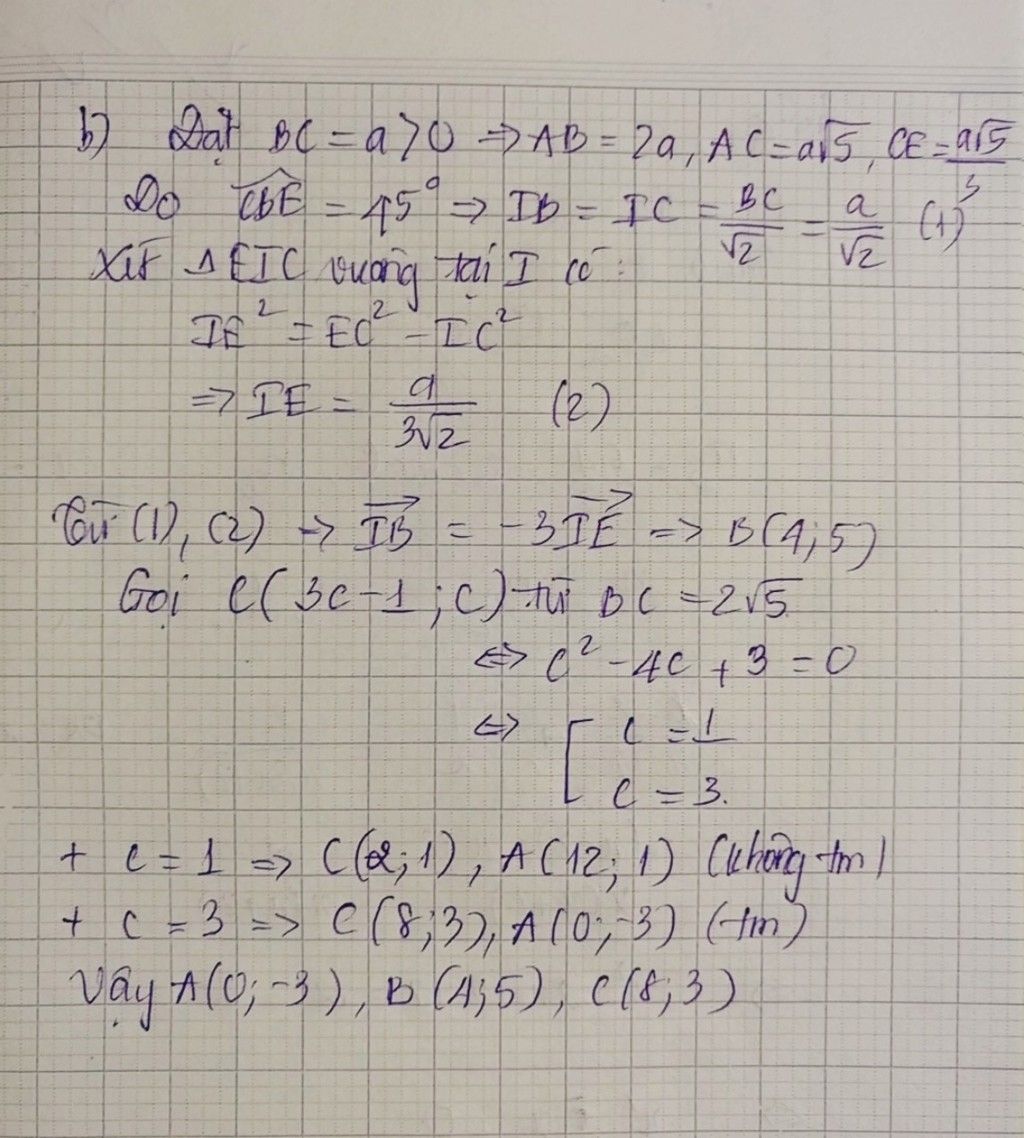 b) Đặt BC = a > 0 ⇒ AB = 2a, AC = a√5, CE = a√5/3
Do \widehat{CBE} = 45° ⇒ IB = IC = BC/√2 = a/√2 (1)
Xét ΔEIC vuông tại I có:
IE² = EC² - IC²
⇒ IE = a/3√2 (2)
Từ (1), (2) ⇒ \overrightarrow{IB} = -3\overrightarrow{IE} ⇒ B(4;5)
Gọi C(3c-1;c) từ BC = 2√5
⇔ c² - 4c + 3 = 0
⇔ [ c = 1
c = 3.
+ c = 1 ⇒ C(2;1), A(12;1) (không tm)
+ c = 3 ⇒ C(8;3), A(0;-3) (tm)
Vậy A(0;-3), B(4;5), C(8;3)